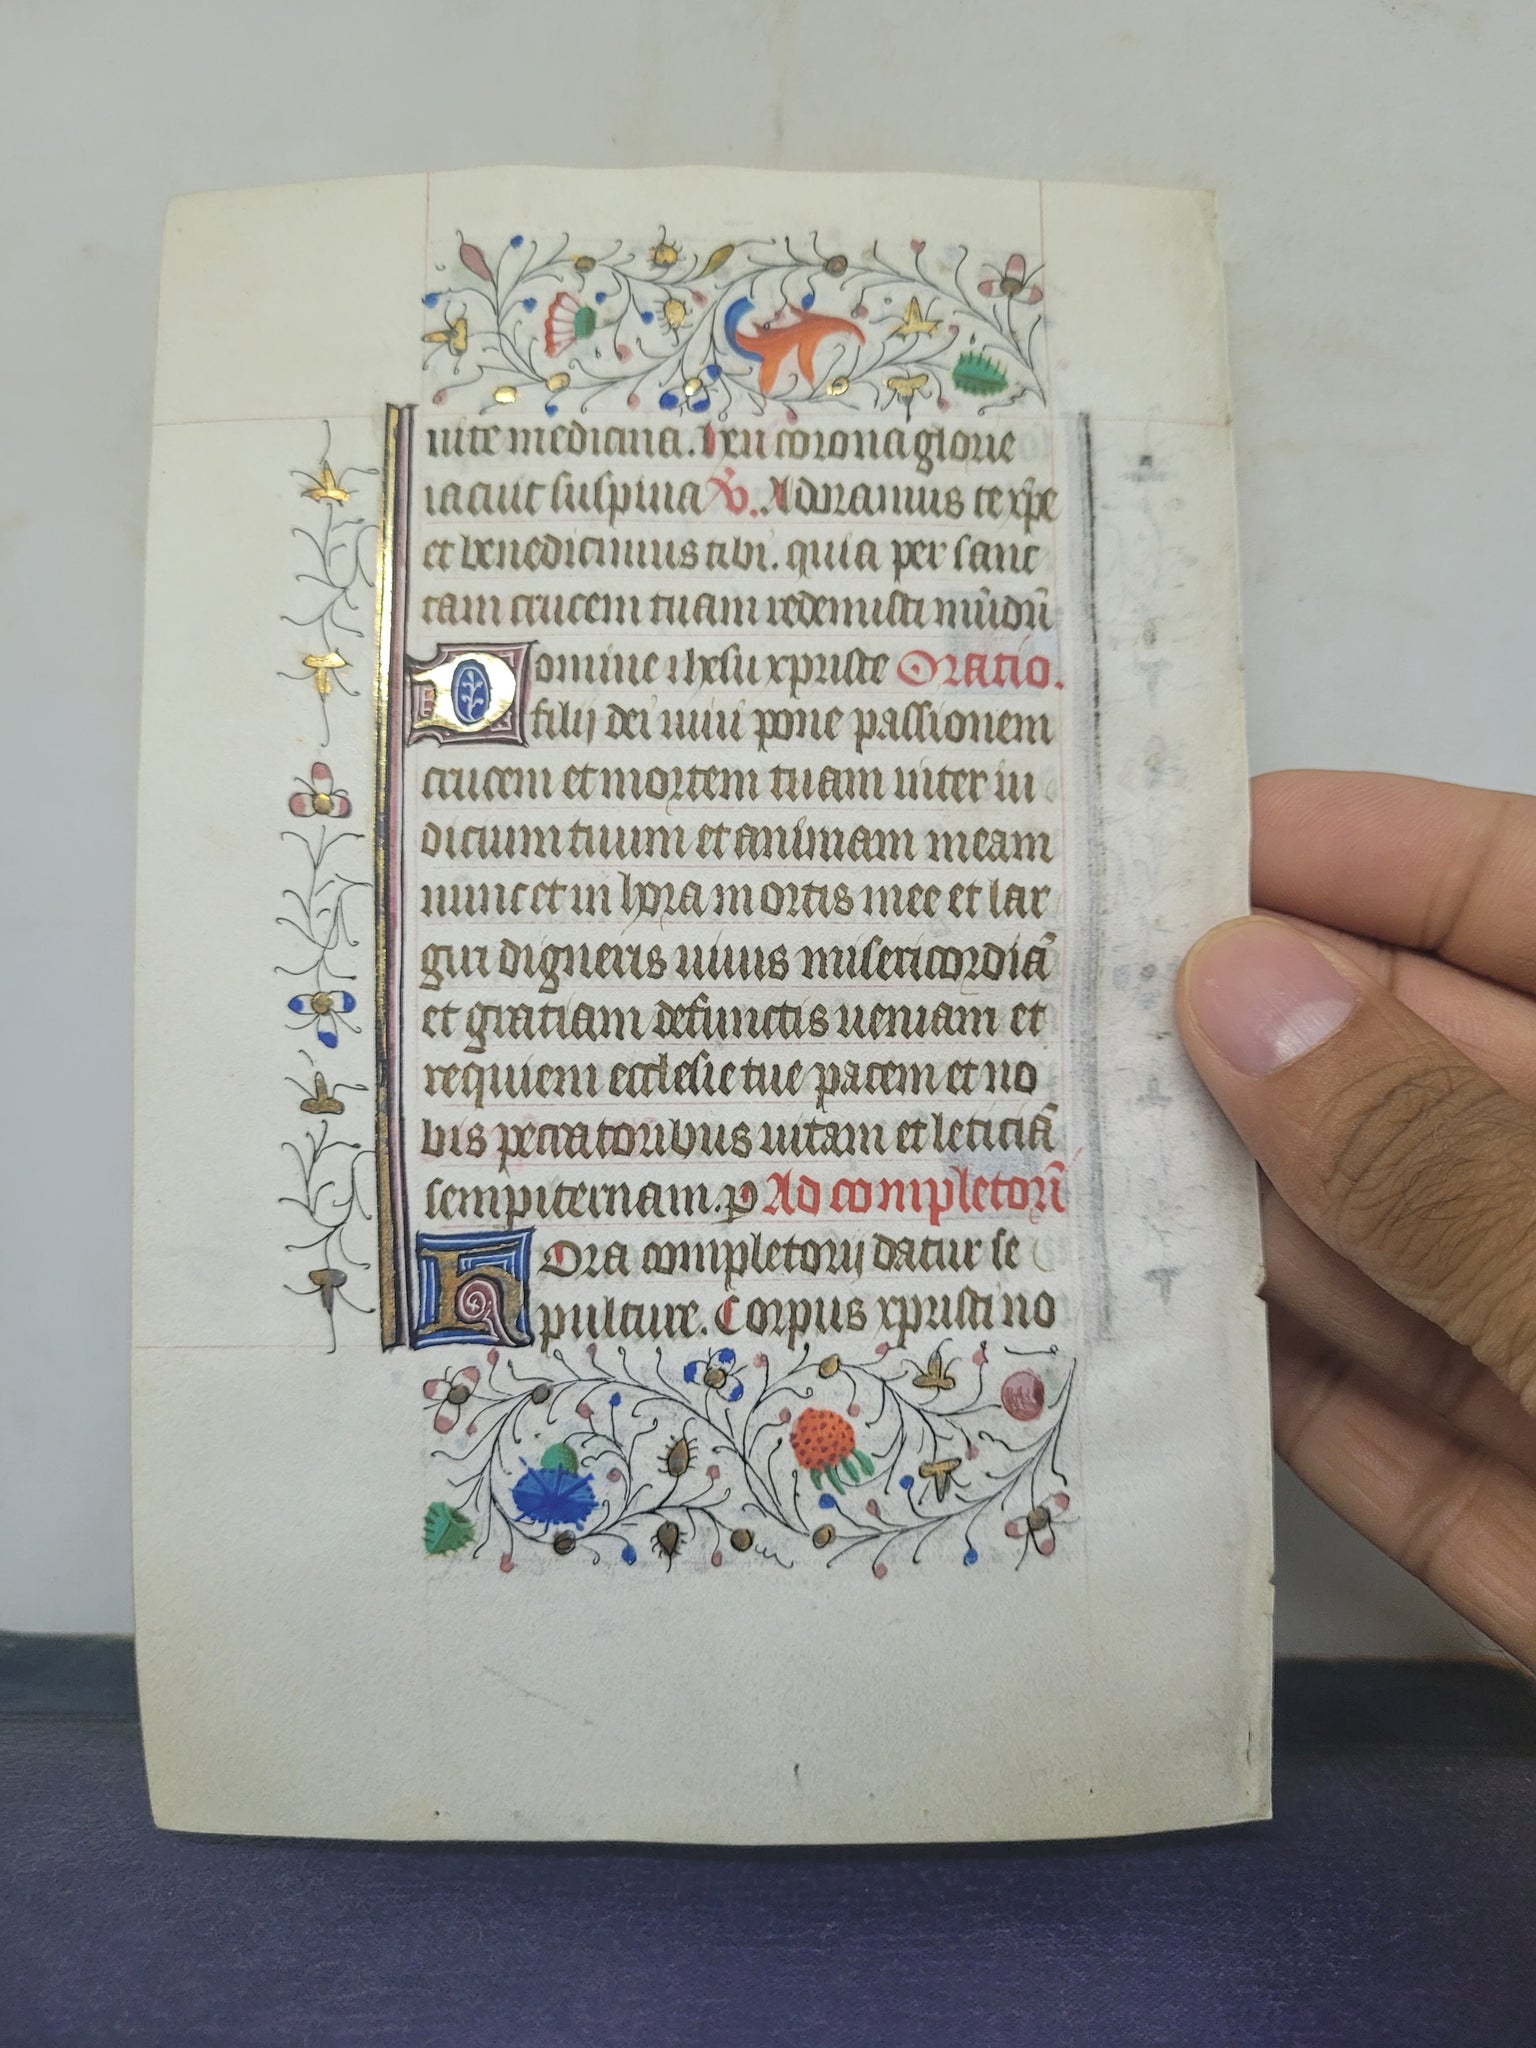 uite medicina. heu corona glorie
iacuit supina ℣. Adoramus te xp̄e
et benedicimus tibi. quia per sanc
tam crucem tuam redemisti mūdū
Domine ihesu xpriste Oratio.
filij dei uiui pone passionem
crucem et mortem tuam inter iu
dicium tuum et animam meam
nunc et in hora mortis mee et lar
giri digneris uiuis misericordiā
et gratiam defunctis ueniam et
requiem ecclesie tue pacem et no
bis peccatoribus uitam et leticiā
sempiternam. p Ad completorū
Hora completorij datur se
pulture. Corpus xpristi no